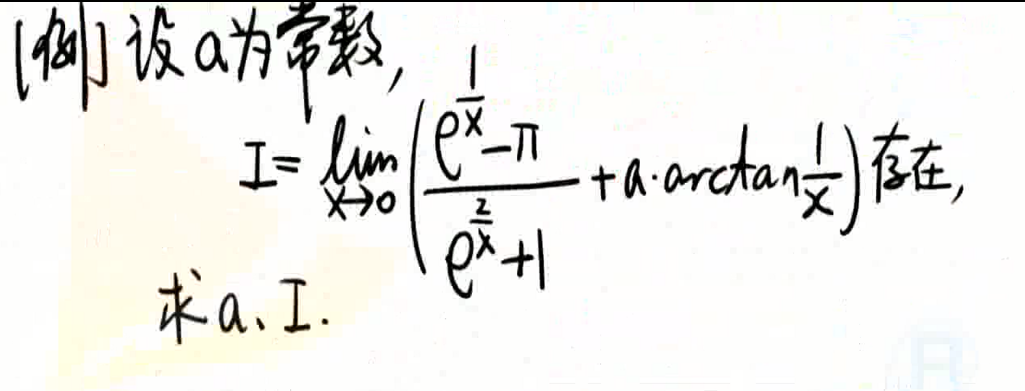 [例] 设 a 为常数,
I = lim_{x→0} ( (e^{1/x} - π) / (e^{2/x} + 1) + a·arctan 1/x ) 存在,
求 a、I.